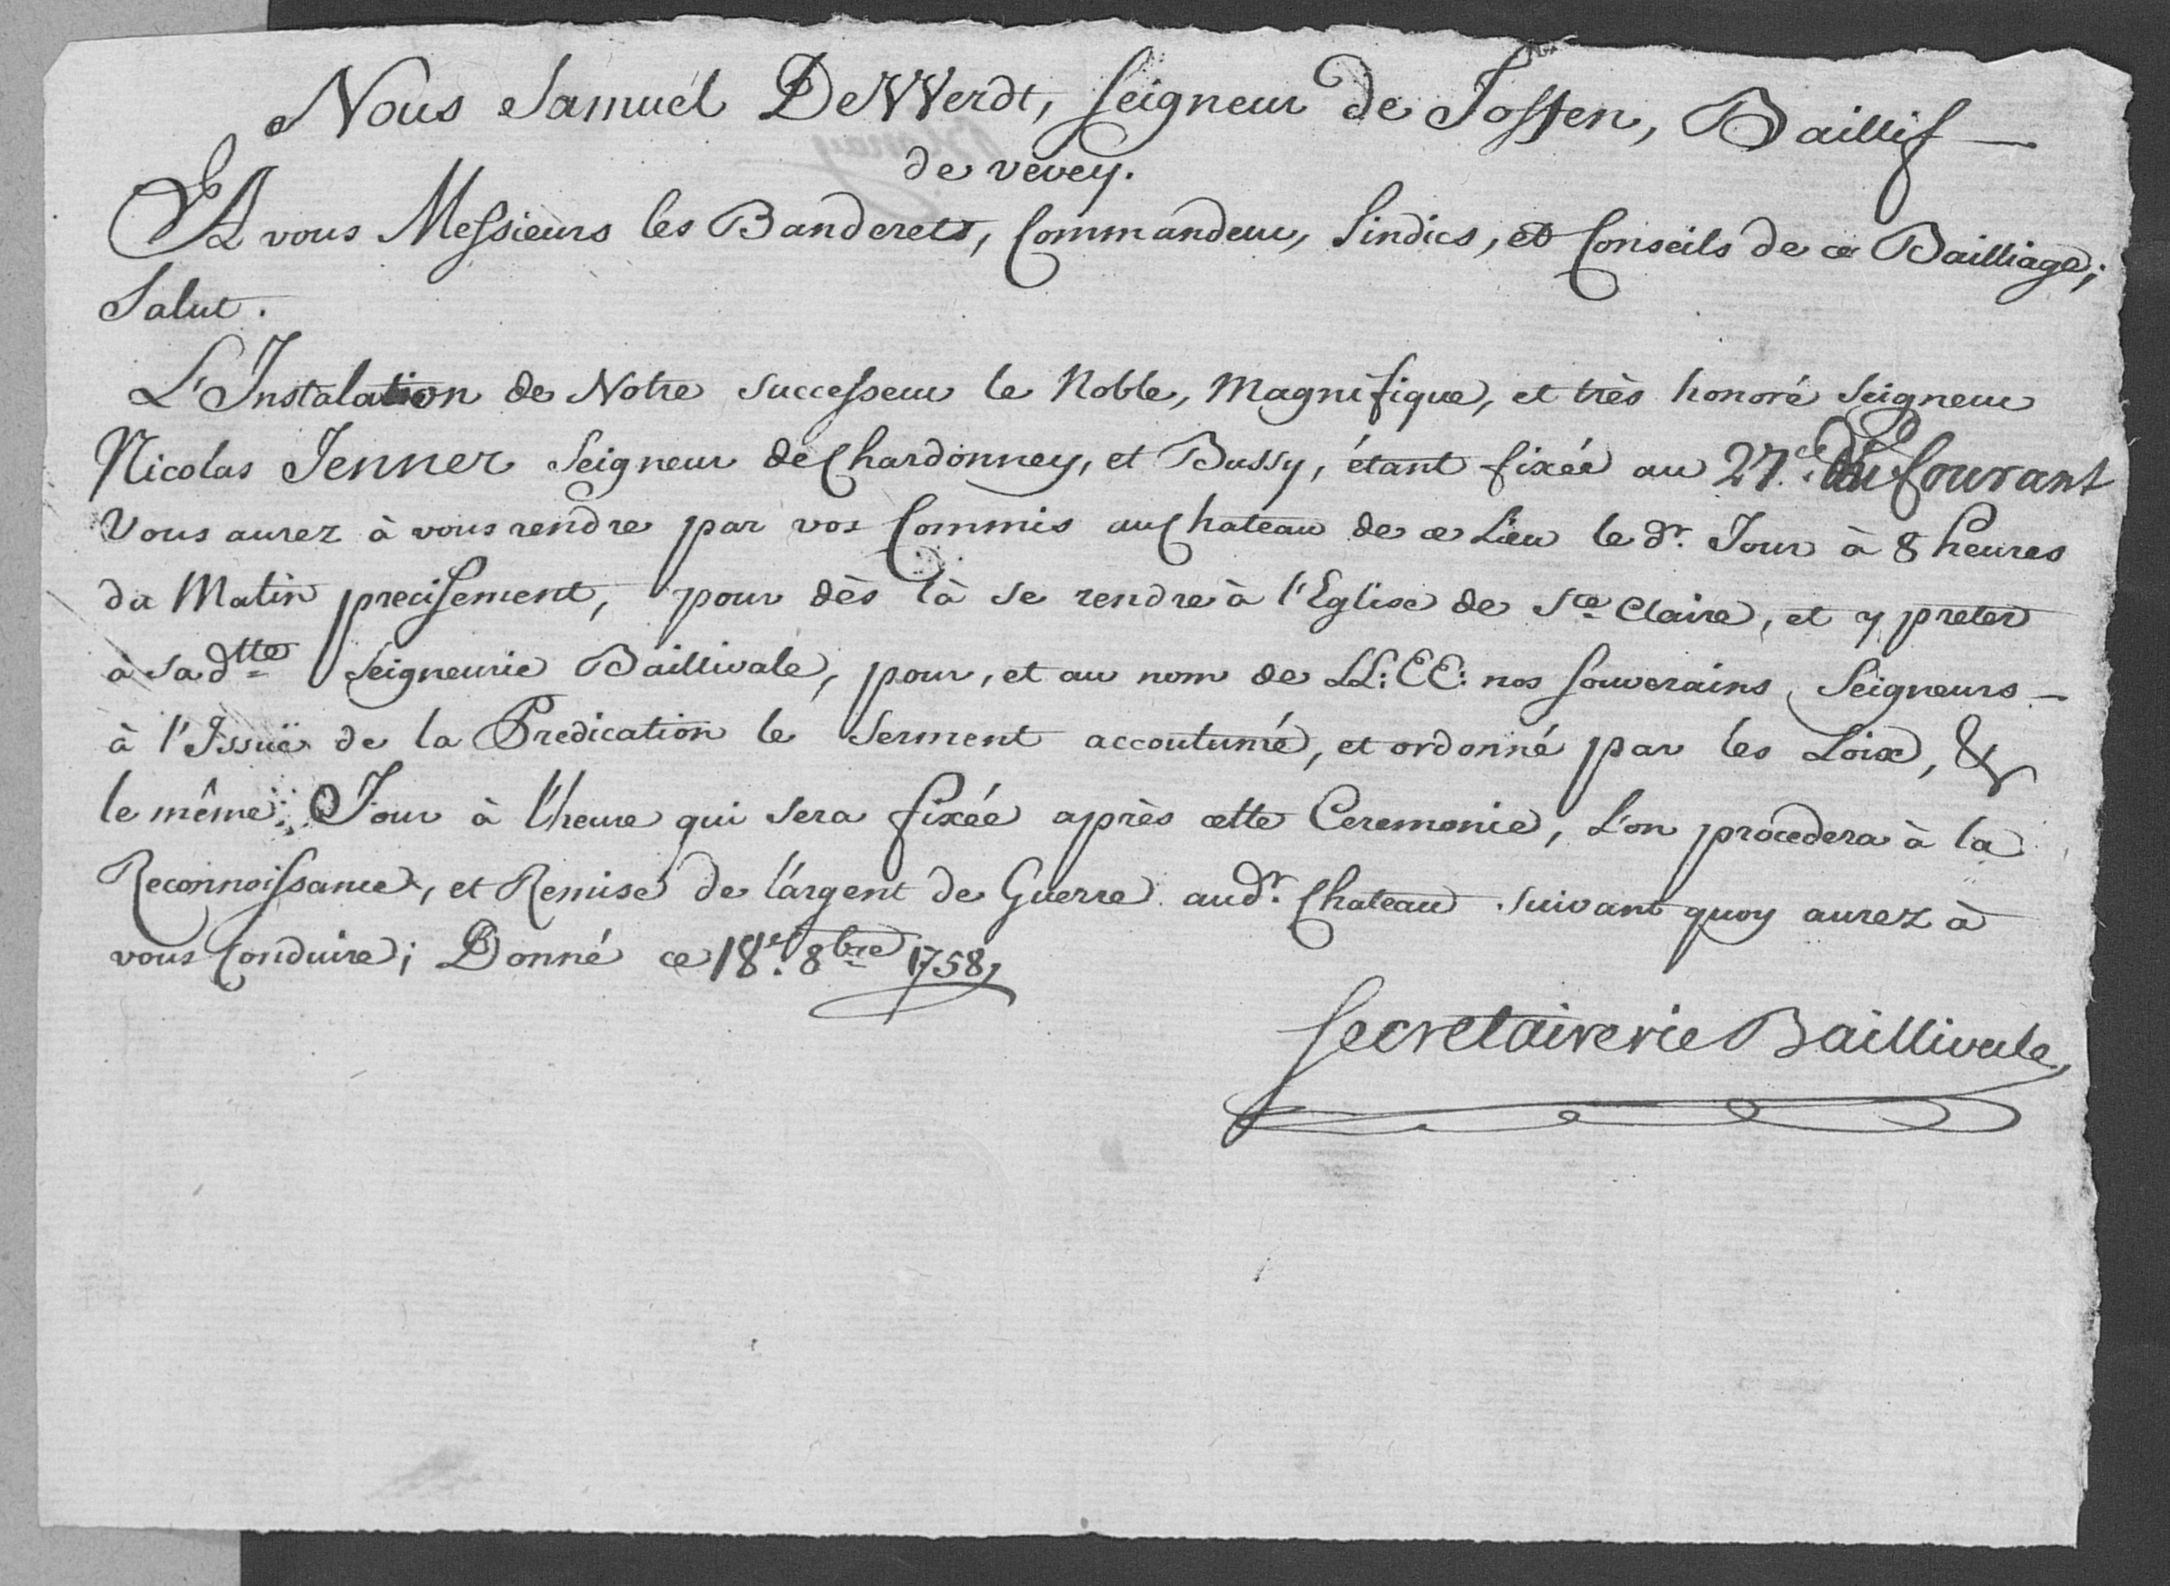 Nous Samuel DeWerdt, Seigneur de Toffen, Baillif
de vevey.
A vous Messieurs les Banderets, Commandeur, Sindics, et Conseils de ce Bailliage;
Salut.
L'Instalation de Notre successeur le Noble, Magnifique, et très honoré Seigneur
Nicolas Jenner Seigneur de Chardonney, et Bussy, étant fixée au 27.e du Courant
Vous aurez à vous rendre par vos Commis au Chateau de ce Lieu le dt. Jour à 8 heures
du Matin precisement, pour dès là se rendre à l'Eglise de Ste Claire, et y preter
à sadtte Seigneurie Baillivale, pour, et au nom de LL:EE: nos souverains Seigneurs
à l'Issuë de la Predication le Serment accoutumé, et ordonné par les Loix, &
le même Jour à l'heure qui sera fixée après cette Ceremonie, l'on procedera à la
Reconnoissance, et Remise de l'argent de Guerre audt. Chateau suivant quoy aurez à
vous Conduire; Donné ce 18.e 8bre 1758,
Secretairerie Baillivale,